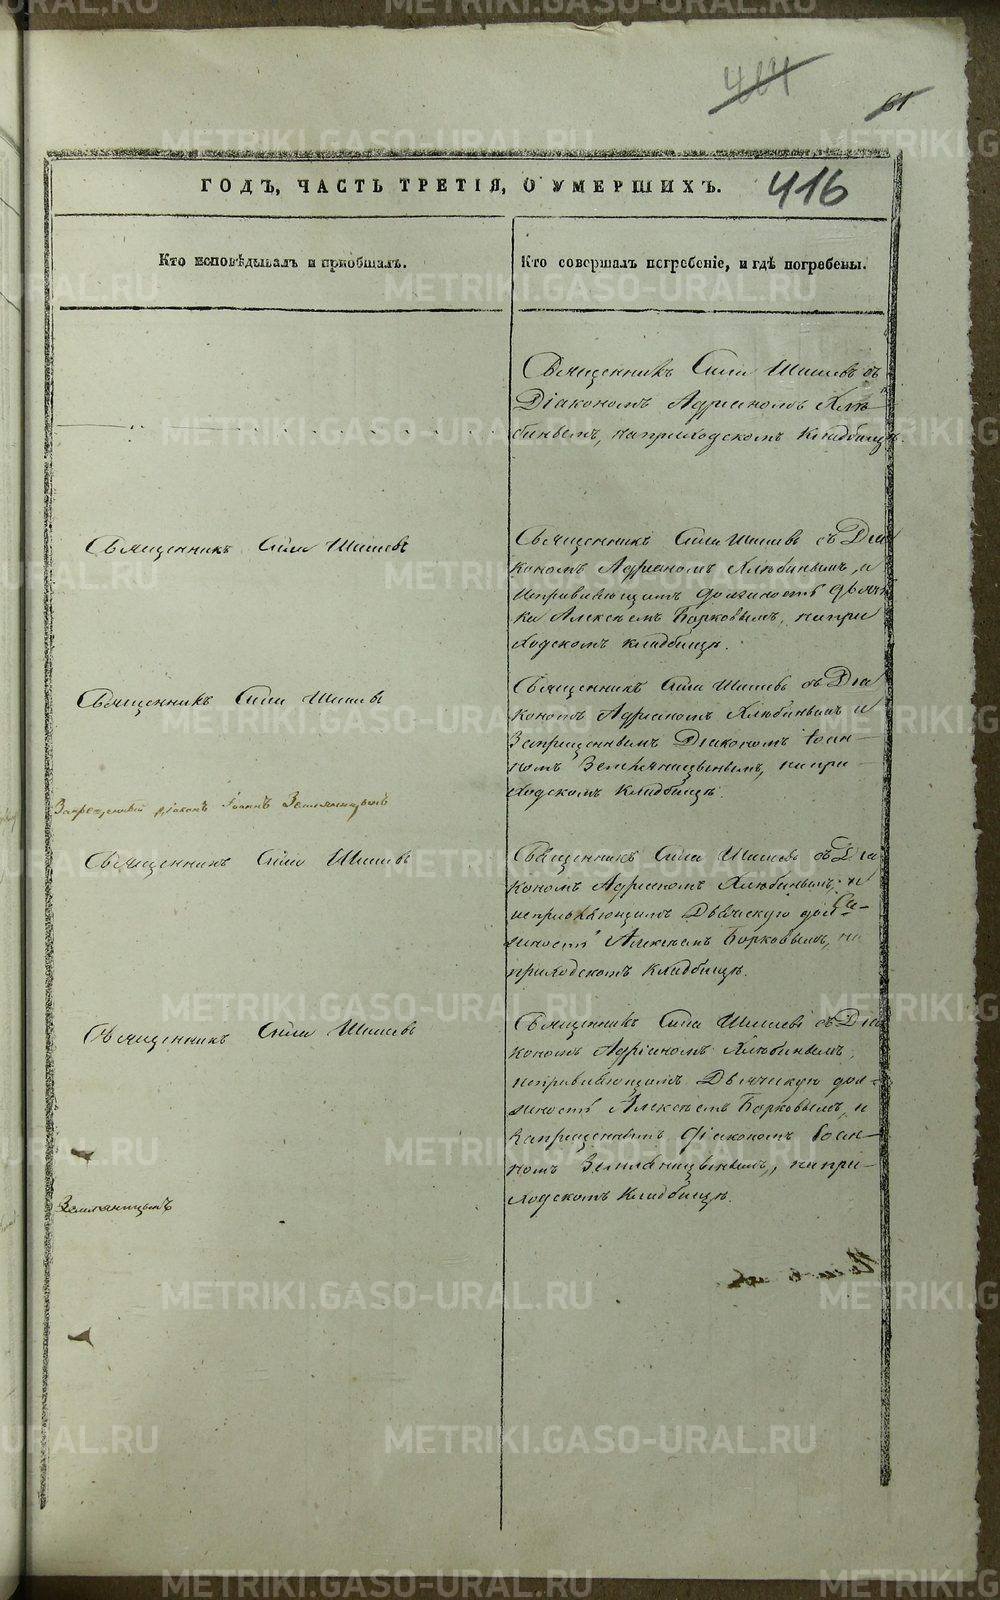 414
61
ГОДЪ, ЧАСТЬ ТРЕТІЯ, О УМЕРШИХЪ.
416
Кто исповѣдывалъ и пріобщалъ.
Кто совершалъ погребеніе, и гдѣ погребены.
Священникъ Сила Шишевъ съ
Діакономъ Адріаномъ Хлю-
бинымъ, на приходскомъ кладбищѣ.
Священникъ Сила Шишевъ
Священникъ Сила Шишевъ съ Діа
кономъ Адріаномъ Хлюбинымъ, и
исправляющимъ должность дьяч
ка Алексѣемъ Борковымъ, на при
ходскомъ кладбищѣ.
Священникъ Сила Шишевъ
Священникъ Сила Шишевъ съ Діа
кономъ Адріаномъ Хлюбинымъ и
Запрещеннымъ Діакономъ Іоан-
номъ Земляницынымъ, на при-
ходскомъ кладбищѣ.
Запрещенный діаконъ Іоаннъ Земляницынъ
Священникъ Сила Шишевъ
Священникъ Сила Шишевъ съ Діа
кономъ Адріаномъ Хлюбинымъ, и
исправляющимъ Дьяческую дол-
жность Алексѣемъ Борковымъ, на
приходскомъ кладбищѣ.
Священникъ Сила Шишевъ
Священникъ Сила Шишевъ съ Діа
кономъ Адріаномъ Хлюбинымъ,
исправляющимъ Дьяческую дол-
жность Алексѣемъ Борковымъ, и
Запрещеннымъ Діакономъ Іоан-
номъ Земляницынымъ, на при-
ходскомъ кладбищѣ.
Земляницынъ
METRIKI.GASO-URAL.RU